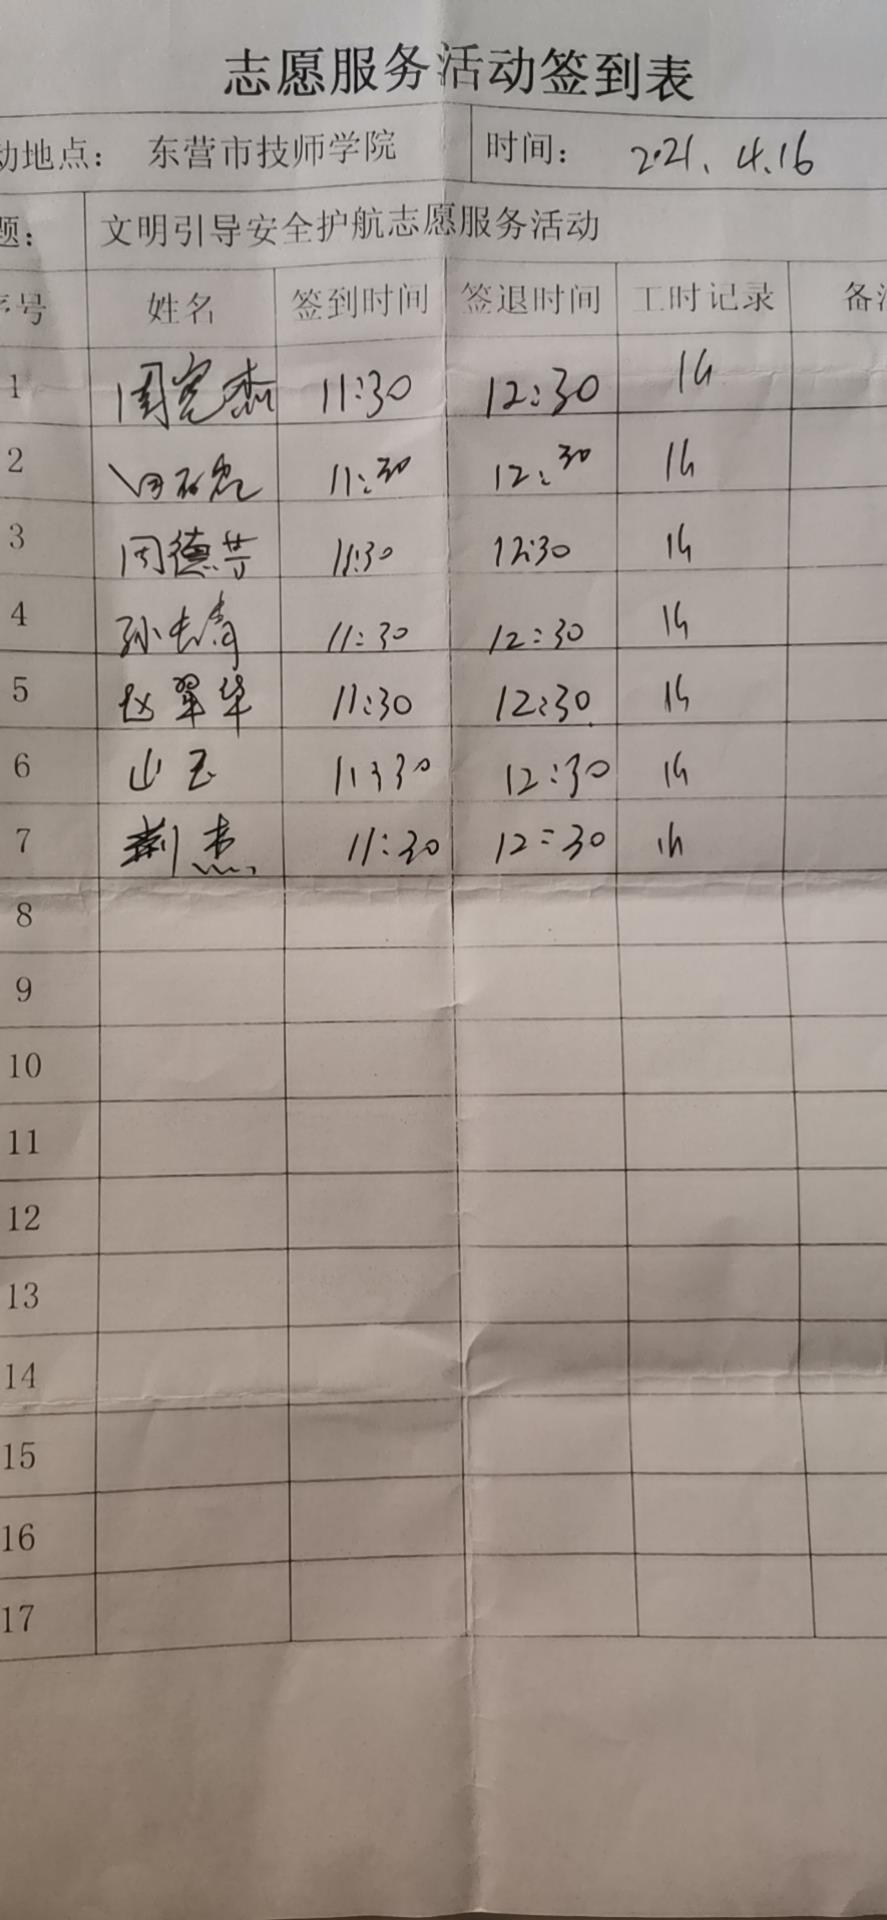 志愿服务活动签到表
动地点： 东营市技师学院 时间： 2021.4.16
题： 文明引导安全护航志愿服务活动
序号 姓名 签到时间 签退时间 工时记录 备注
1 周宪杰 11:30 12:30 1h
2 11:30 12:30 1h
3 周德芳 11:30 12:30 1h
4 孙长青 11:30 12:30 1h
5 赵翠华 11:30 12:30 1h
6 山玉 11:30 12:30 1h
7 荆杰 11:30 12:30 1h
8
9
10
11
12
13
14
15
16
17